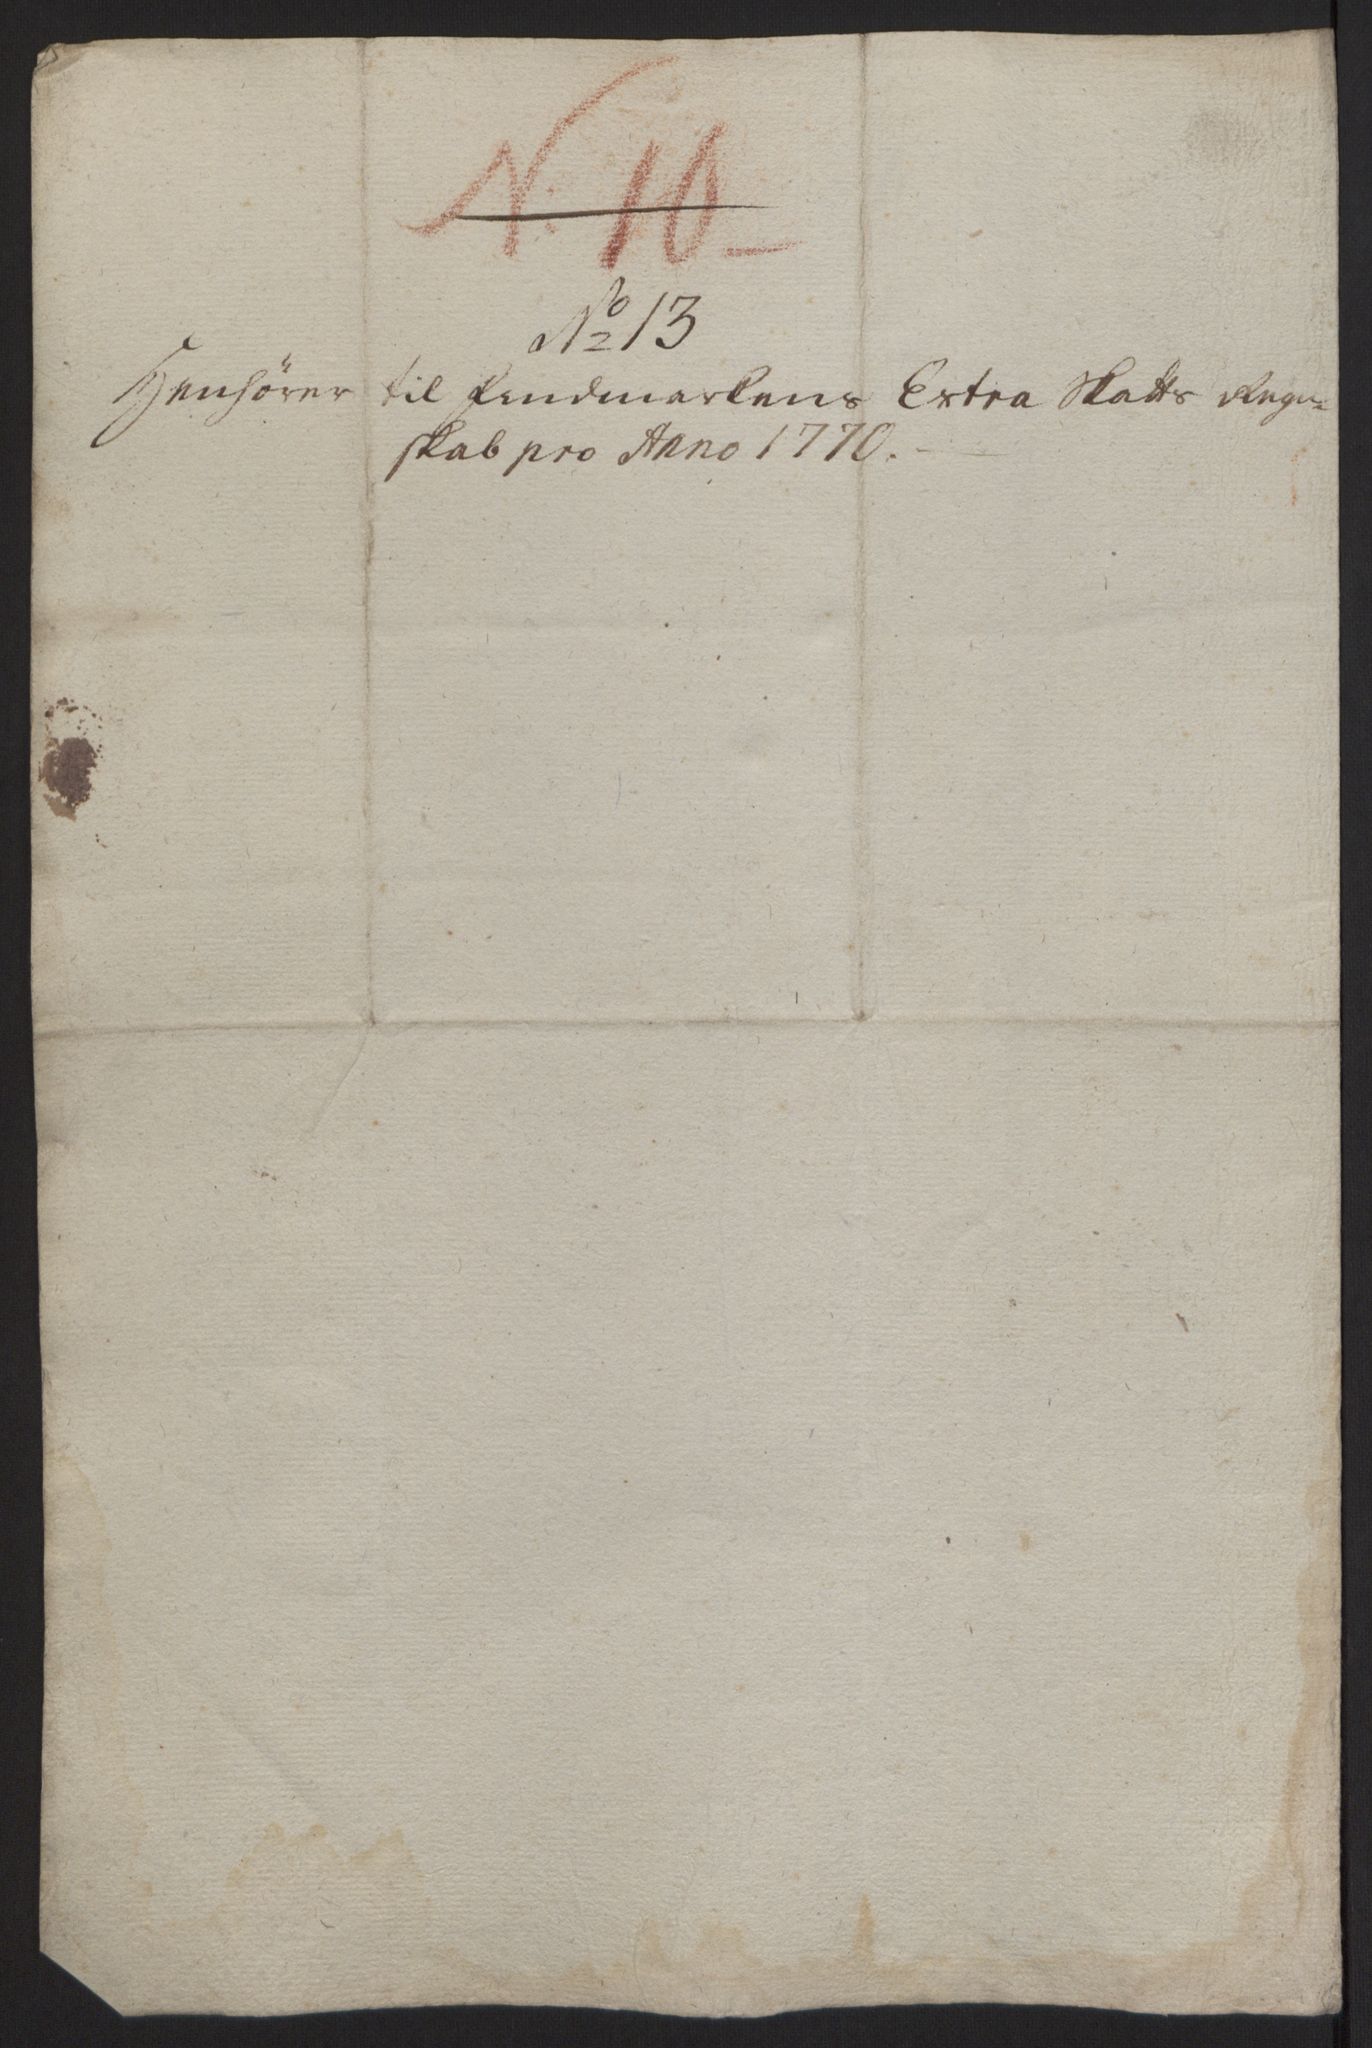 N. 10
No 13
Henhörer til Findmarkens Extra Skatts Regn=
skab pro Anno 1770.